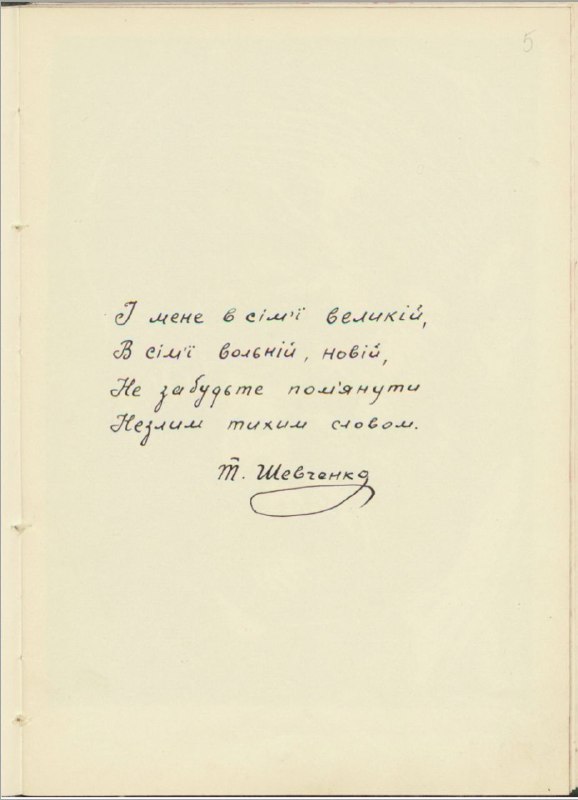 5
І мене в сім'ї великій,
В сім'ї вольній, новій,
Не забудьте пом'янути
Незлим тихим словом.
Т. Шевченко